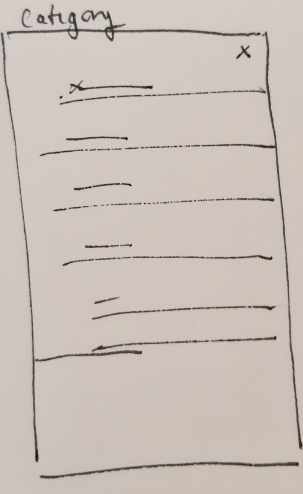 Category
X
x